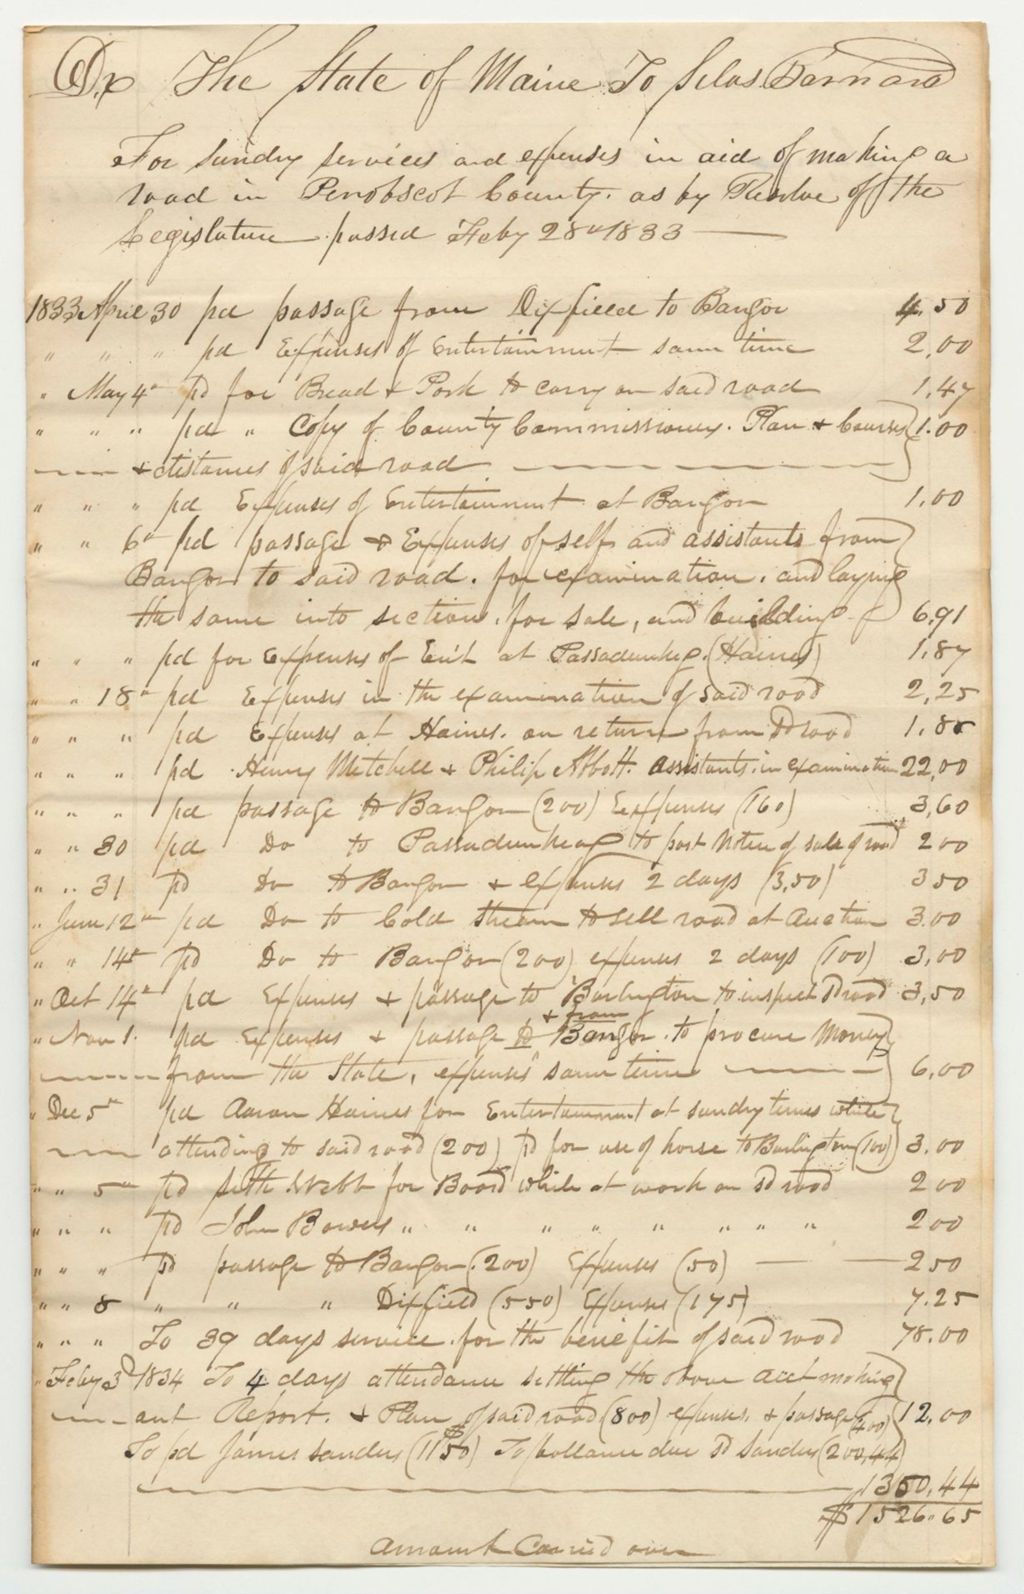 Dr The State of Maine To Silas Barnard
For Sundry services and expenses in aid of making a
road in Penobscot County. as by Resolve of the
Legislature passed Feby 28th 1833
1833 April 30 pd passage from Dixfield to Bangor 4.50
" " " pd Expenses of Entertainment same time 2,00
" May 4th pd for Bread & Pork to carry on said road 1,47
" " " pd " Copy of County Commissioners. Plan & Courses 1.00
& distances of said road
" " " pd Expenses of Entertainment at Bangor 1,00
" " 6th pd passage & Expenses of self and assistants from
Bangor to said road. for examination. and laying
the same into sections. for sale, and building 6,91
" " " pd for Expenses of Ent at Passadunkeg. (Haines) 1,87
" " 18th pd Expenses in the examination of said road 2,25
" " " pd Expenses at Haines. on return from sd road 1.88
" " " pd Henry Mitchell & Philip Abbott. assistants. in examination 22,00
" " " pd passage to Bangor (200) Expenses (160) 3,60
" " 30 pd Do to Passadunkeag to post Notice of sale of road 2 00
" " 31 pd Do to Bangor & expenses 2 days (3,50) 3 50
" June 12th pd Do to Cold Stream to sell road at Auction 3.00
" " 14th pd Do to Bangor (200) expenses 2 days (100) 3,00
" Oct 14th pd Expenses & passage to Burlington to inspect sd road 3,50
& from
" Nov 1. pd Expenses & passage to Bangor. to procure Money
from the State, expenses same time 6,00
" Dec 5th pd Aaron Haines for Entertainment at sundry times while
attending to said road (200) pd for use of horse to Burlington (100) 3.00
" " 5th pd Seth Webb for Board while at work on sd road 2 00
" " " pd John Bowers " " " " " " " " 2 00
" " " pd passage to Bangor (200) Expenses (50) 2 50
" " 8 " " " Dixfield (550) Expenses (175) 7.25
" " " To 39 days service. for the benefit of said road 78.00
" Feby 3d 1834 To 4 days attendance settling the above acct making
out Report. & Plan of said road (800) expenses. & passage (400) 12.00
To pd James Sanders (1150) To ballance due sd Sanders (200,44)
1350,44
$1526.65
Amount Carried over